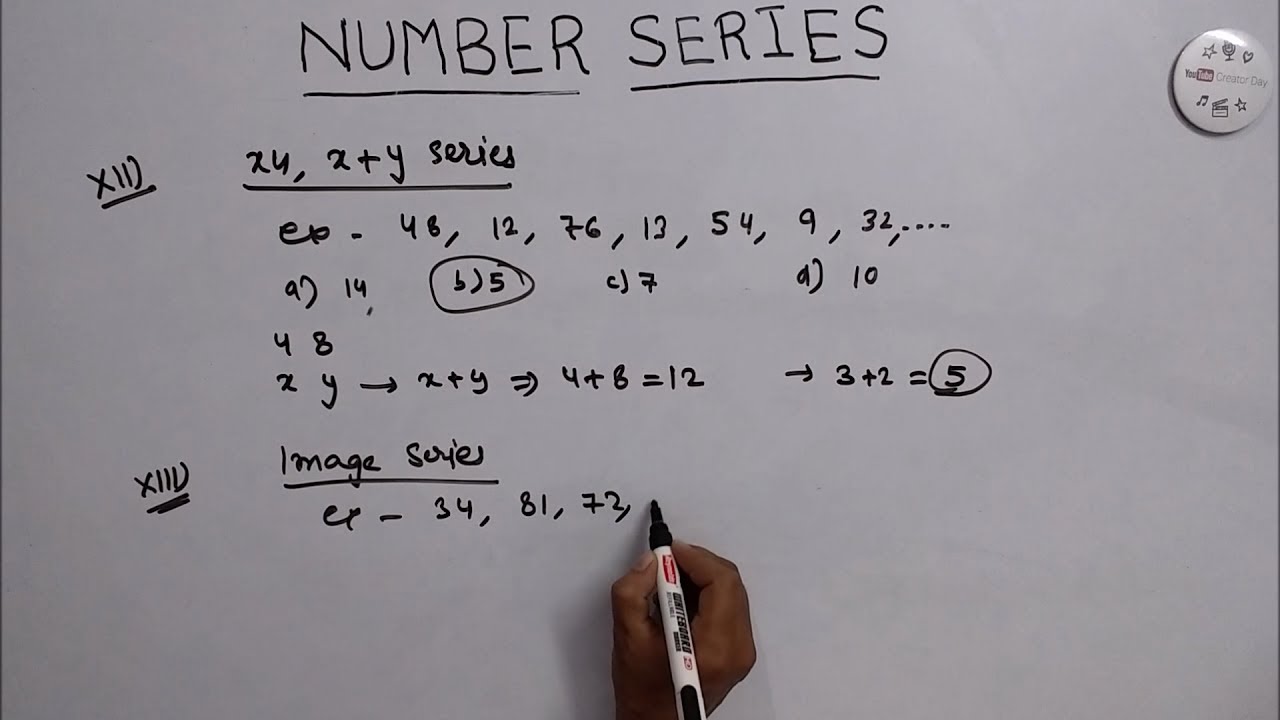 NUMBER SERIES
YouTube Creator Day
XII) xy, x+y series
ex - 48, 12, 76, 13, 54, 9, 32,....
a) 14, b) 5 c) 7 d) 10
4 8
x y → x+y ⇒ 4+8=12 → 3+2=5
XIII) Image series
ex - 34, 81, 72,